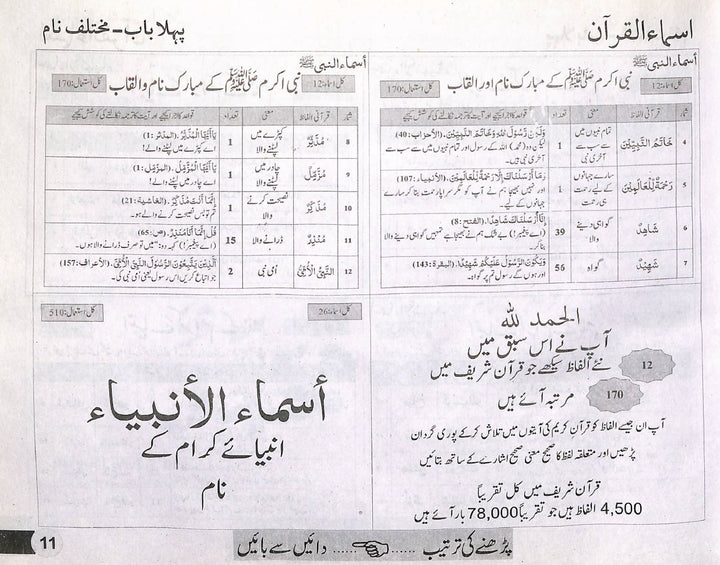 اسماء القرآن
پہلا باب - مختلف نام
أسماء النبي ﷺ
کل اسماء: 12
نبی اکرم صلی اللہ علیہ وسلم کے مبارک نام اور القاب
کل استعمال: 170
شمار قرآنی الفاظ معنی تعداد
4 خَاتَمُ النَّبِيِّينَ تمام نبیوں میں سے سب سے آخری نبی 1 وَلَكِنْ رَسُولَ اللهِ وَخَاتَمَ النَّبِيِّينَ. (الأحزاب: 40)
لیکن وہ (محمد) اللہ کے رسول اور تمام نبیوں میں سے سب سے آخری نبی ہیں۔
5 رَحْمَةٌ لِلْعَالَمِينَ سارے جہانوں کے لیے رحمت ہی رحمت 1 وَمَا أَرْسَلْنَاكَ إِلَّا رَحْمَةً لِلْعَالَمِينَ. (الأنبياء: 107)
اور نہیں بھیجا ہم نے آپ کو مگر سراپا رحمت بنا کر سارے جہانوں کے لیے۔
6 شَاهِدٌ گواہی دینے والا 39 إِنَّا أَرْسَلْنَاكَ شَاهِدًا. (الفتح: 8)
(اے پیغمبر!) بے شک ہم نے بھیجا ہے تمہیں گواہی دینے والا بنا کر۔
7 شَهِيدٌ گواہ 56 وَيَكُونَ الرَّسُولُ عَلَيْكُمْ شَهِيدًا. (البقرة: 143)
اور ہوں گے رسول تم پر گواہ۔
أسماء النبي ﷺ
کل اسماء: 12
نبی اکرم صلی اللہ علیہ وسلم کے مبارک نام والقاب
کل استعمال: 170
شمار قرآنی الفاظ معنی تعداد
8 مُدَّثِّرٌ کپڑے میں لپٹنے والا 1 يَا أَيُّهَا الْمُدَّثِّرُ. (المدثر: 1)
اے کپڑے میں لپٹنے والے!
9 مُزَّمِّلٌ چادر میں لپٹنے والا 1 يَا أَيُّهَا الْمُزَّمِّلُ. (المزمل: 1)
اے چادر میں لپٹنے والے!
10 مُذَكِّرٌ نصیحت کرنے والا 1 إِنَّمَا أَنْتَ مُذَكِّرٌ. (الغاشية: 21)
تم تو بس نصیحت کرنے والے ہو۔
11 مُنْذِرٌ ڈرانے والا 15 قُلْ إِنَّمَا أَنَا مُنْذِرٌ. (ص: 65)
(اے پیغمبر!) کہہ دو: "میں تو صرف ڈرانے والا ہوں۔
12 النَّبِيُّ الْأُمِّيُّ اُمی نبی 2 الَّذِينَ يَتَّبِعُونَ الرَّسُولَ النَّبِيَّ الْأُمِّيَّ. (الأعراف: 157)
جو اتباع کریں اس رسول یعنی اُمی نبی کی۔
الحمد للہ
آپ نے اس سبق میں
12 نئے الفاظ سیکھے جو قرآن شریف میں
170 مرتبہ آئے ہیں
آپ ان جیسے الفاظ کو قرآن کریم کی آیتوں میں تلاش کرکے پوری گردان
پڑھیں اور متعلقہ لفظ کا صحیح معنی صحیح اشارے کے ساتھ بتائیں
قرآن شریف میں کل تقریباً
4,500 الفاظ ہیں جو تقریباً 78,000 بار آئے ہیں
کل اسماء: 26
کل استعمال: 510
أسماء الأنبياء
انبیائے کرام کے
نام
پڑھنے کی ترتیب ...... دائیں سے بائیں
11